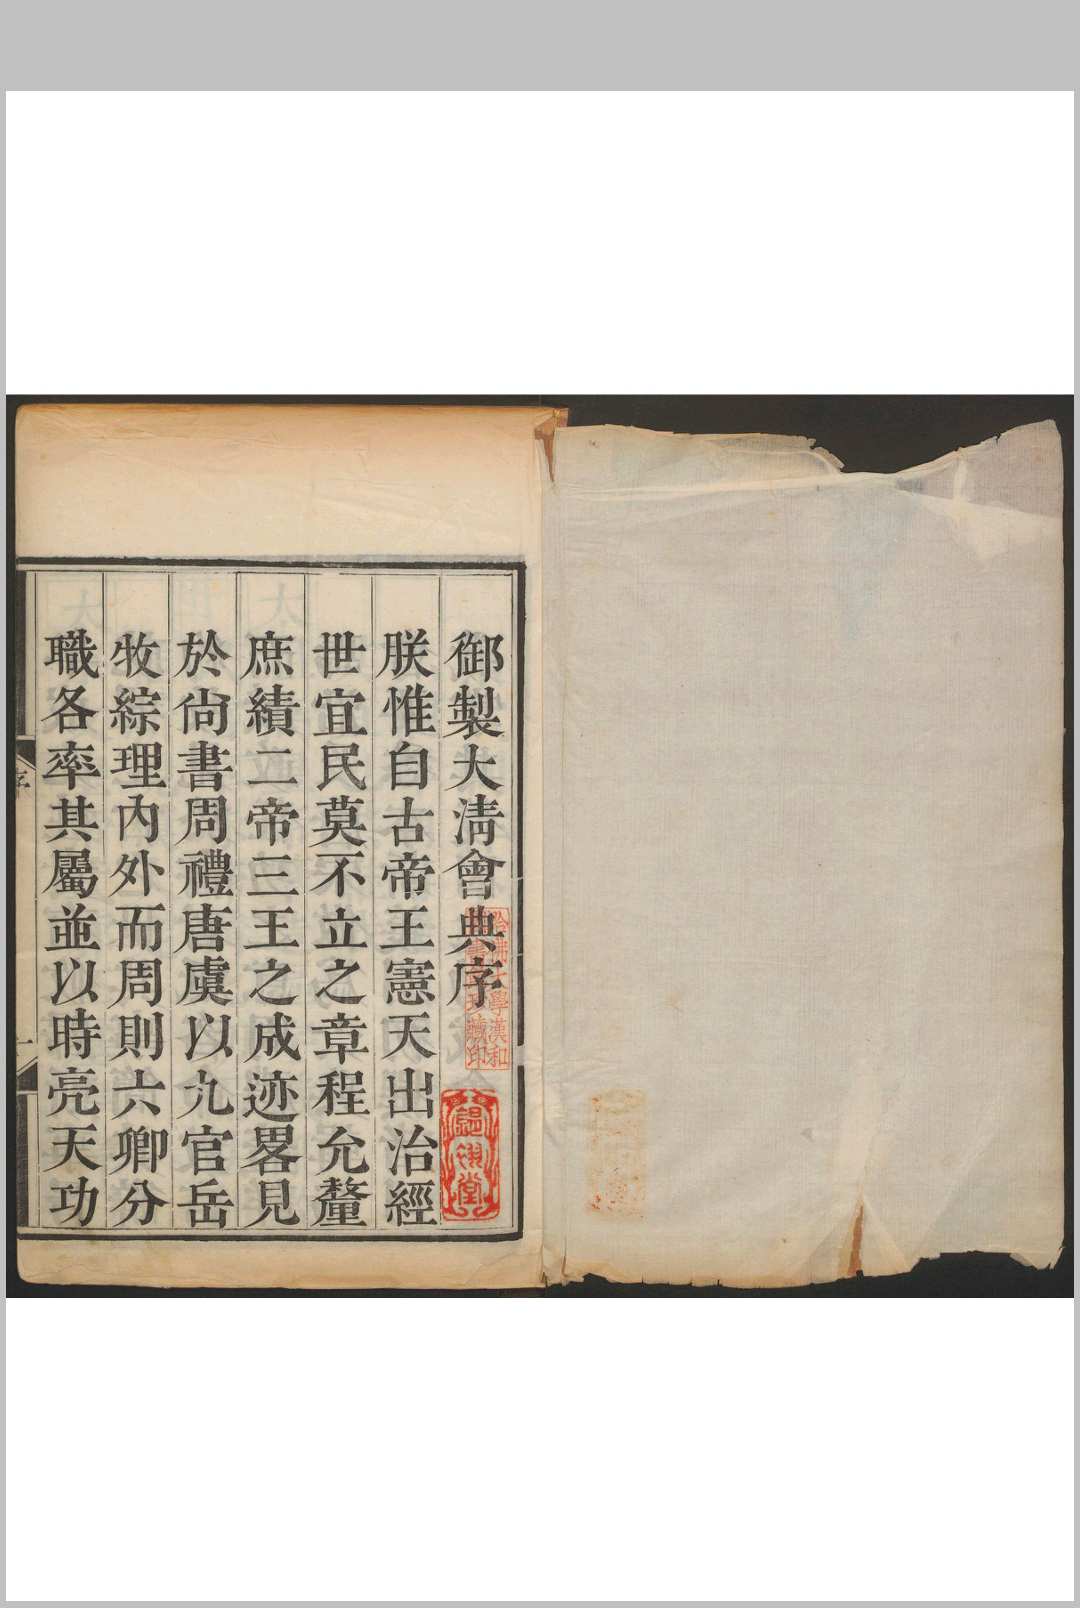 御製大淸會典序
朕惟自古帝王憲天出治經
世宜民莫不立之章程允釐
庶績二帝三王之成迹畧見
於尙書周禮唐虞以九官岳
牧綜理內外而周則六卿分
職各率其屬並以時亮天功
序
一